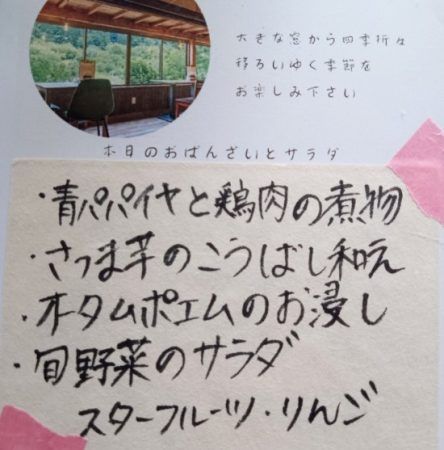 大きな窓から四季折々
移ろいゆく季節を
お楽しみ下さい
本日のおばんざいとサラダ
・青パパイヤと鶏肉の煮物
・さつま芋のこうばし和え
・オータムポエムのお浸し
・旬野菜のサラダ
スターフルーツ・りんご